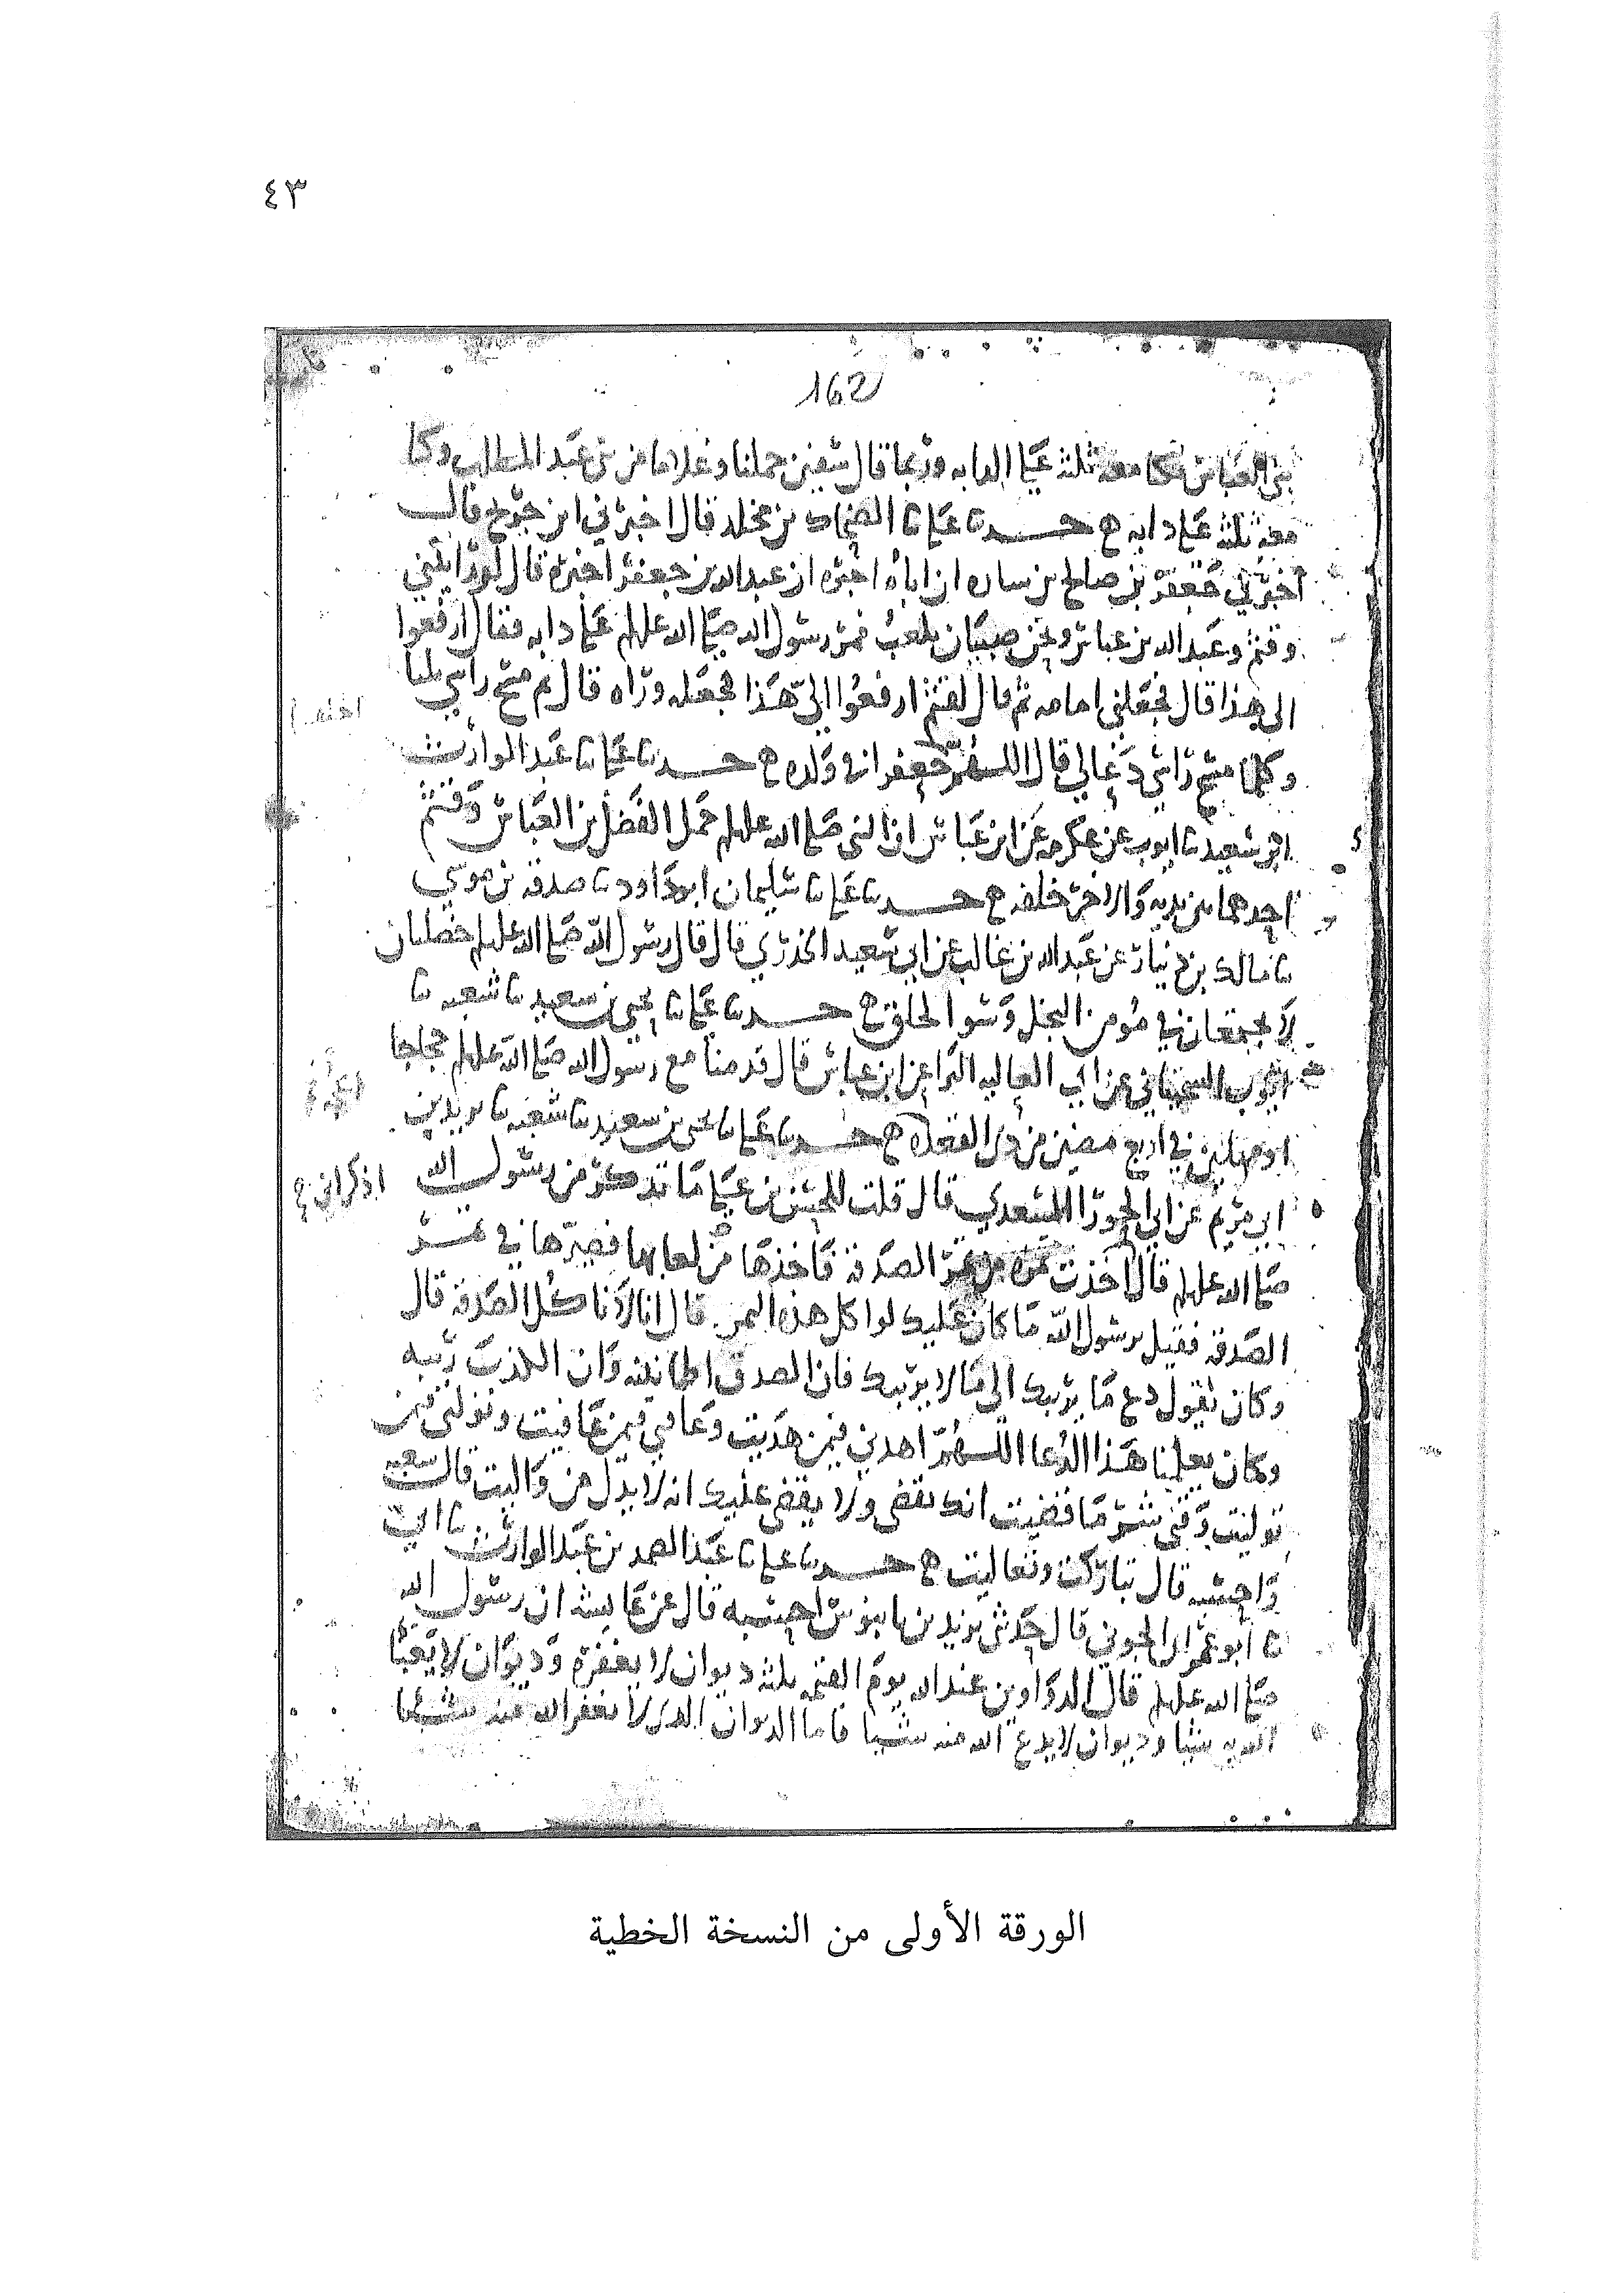 ٤٣
162
بني العباس فكنا معه ثلثه علي الدابه وربما قال سفين حملنا وغلاما من بني عبد المطلب وكنا
معه ثلثه علي دابه ح حدثنا علي نا الضحاك بن مخلد قال اخبرني ابن جريج قال
اخبرني جعفر بن صالح بن ساره ان اباه اخبره ان عبد الله بن جعفر اخبره قال لو رايتني
وقثم وعبد الله بن عباس ونحن صبيان نلعب فمر رسول الله صلى الله عليه وسلم علي دابه فقال ارفعوا
الي هذا قال فجعلني امامه ثم قال لقثم ارفعوا الي هذا فجعله وراه قال ثم مسح راسي ثلثا
وكلما مسح راسي دعا لي قال اللهم جعفرا في ولده ح حدثنا علي نا عبد الوارث
ابن سعيد نا ايوب عن عكرمه عن ابن عباس ان النبي صلى الله عليه وسلم حمل الفضل بن العباس وقثم
احدهما بين يديه والاخر خلفه ح حدثنا علي نا سليمان ابو داود نا صدقه بن موسي
نا مالك بن دينار عن عبد الله بن غالب عن ابي سعيد الخدري قال قال رسول الله صلى الله عليه وسلم خصلتان
لا يجتمعان في مومن البخل وسو الخلق ح حدثنا علي نا يحيي بن سعيد نا شعبه نا
ايوب السختياني عن ابي العاليه البرا عن ابن عباس قال قدمنا مع رسول الله صلى الله عليه وسلم حجاجا
مهلين في اربع مضين من ذي القعده ح حدثنا علي نا يحيي بن سعيد نا شعبه نا بريد بن
ابي مريم عن ابي الحورا السعدي قال قلت للحسن بن علي ما تذكر من رسول الله
اذكر اني
صلى الله عليه وسلم قال اخذت تمره من تمر الصدقه فاخذها من لعابها فصيرها في تمر
الصدقه فقيل يرسول الله ما كان عليك لو اكل هذه التمر قال انا لا ناكل الصدقه قال
وكان يقول دع ما يريبك الي ما لا يريبك فان الصدق طمانينه وان الكذب ريبه
وكان يعلمنا هذا الدعا اللهم اهدني فيمن هديت وعافني فيمن عافيت وتولني فيمن
توليت وقني شر ما قضيت انك تقضي ولا يقضي عليك انه لا يذل من واليت قال شعبه
واحسبه قال تباركت وتعاليت ح حدثنا علي نا عبد الصمد بن عبد الوارث نا ابي
نا ابو عمران الجوني قال حدثني يزيد بن بابنوس احسبه قال عن عايشه ان رسول الله
صلى الله عليه وسلم قال الدواوين عند الله يوم القيمه ثلثه ديوان لا يغفره وديوان لا يعبا
الله به شيا وديوان لا يدع الله منه شيا فاما الديوان الذي لا يغفر الله منه شيا
الورقة الأولى من النسخة الخطية